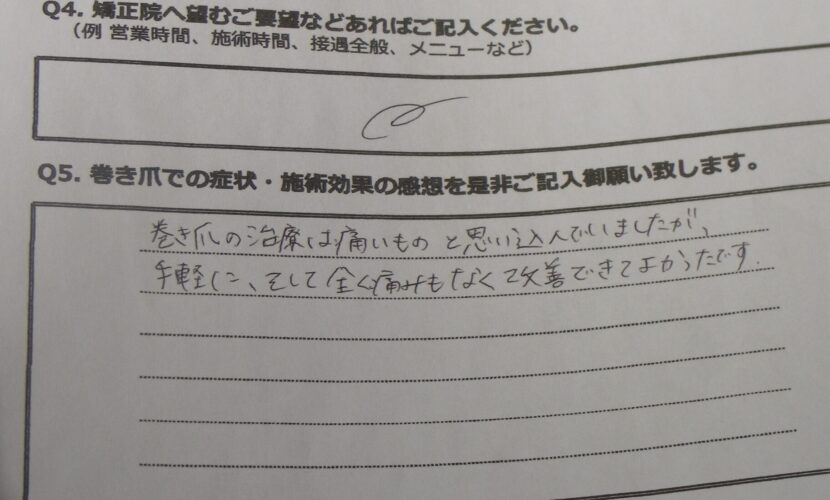 Q4. 矯正院へ望むご要望などあればご記入ください。
（例 営業時間、施術時間、接遇全般、メニューなど）
Q5. 巻き爪での症状・施術効果の感想を是非ご記入御願い致します。
巻き爪の治療は痛いものと思い込んでいましたが、
手軽に、そして全く痛みもなくて改善できてよかったです.